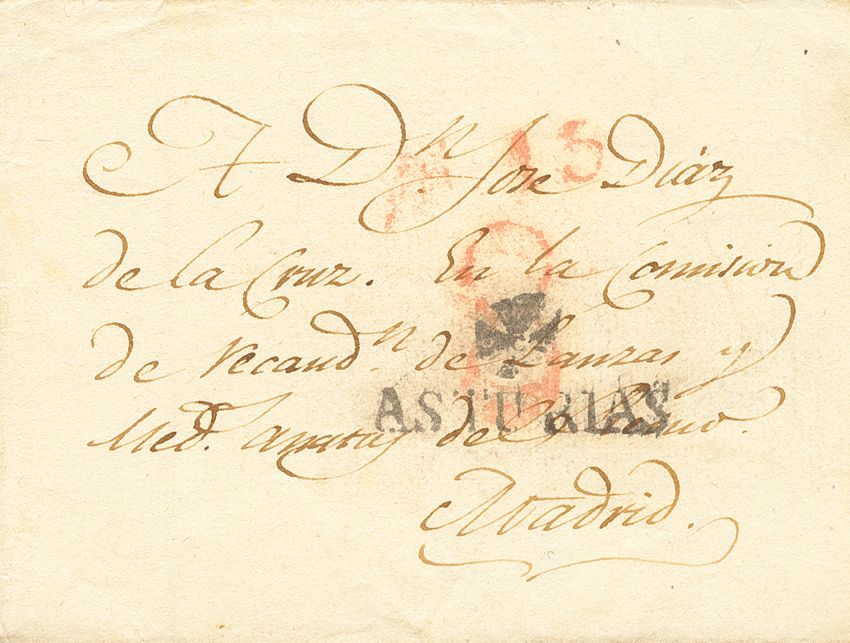 A Dn Jose Diáz
de la Cruz. En la Comision
de recaudn de Lanzas y
Meds anatas del Reino.
Madrid.
15
ASTURIAS